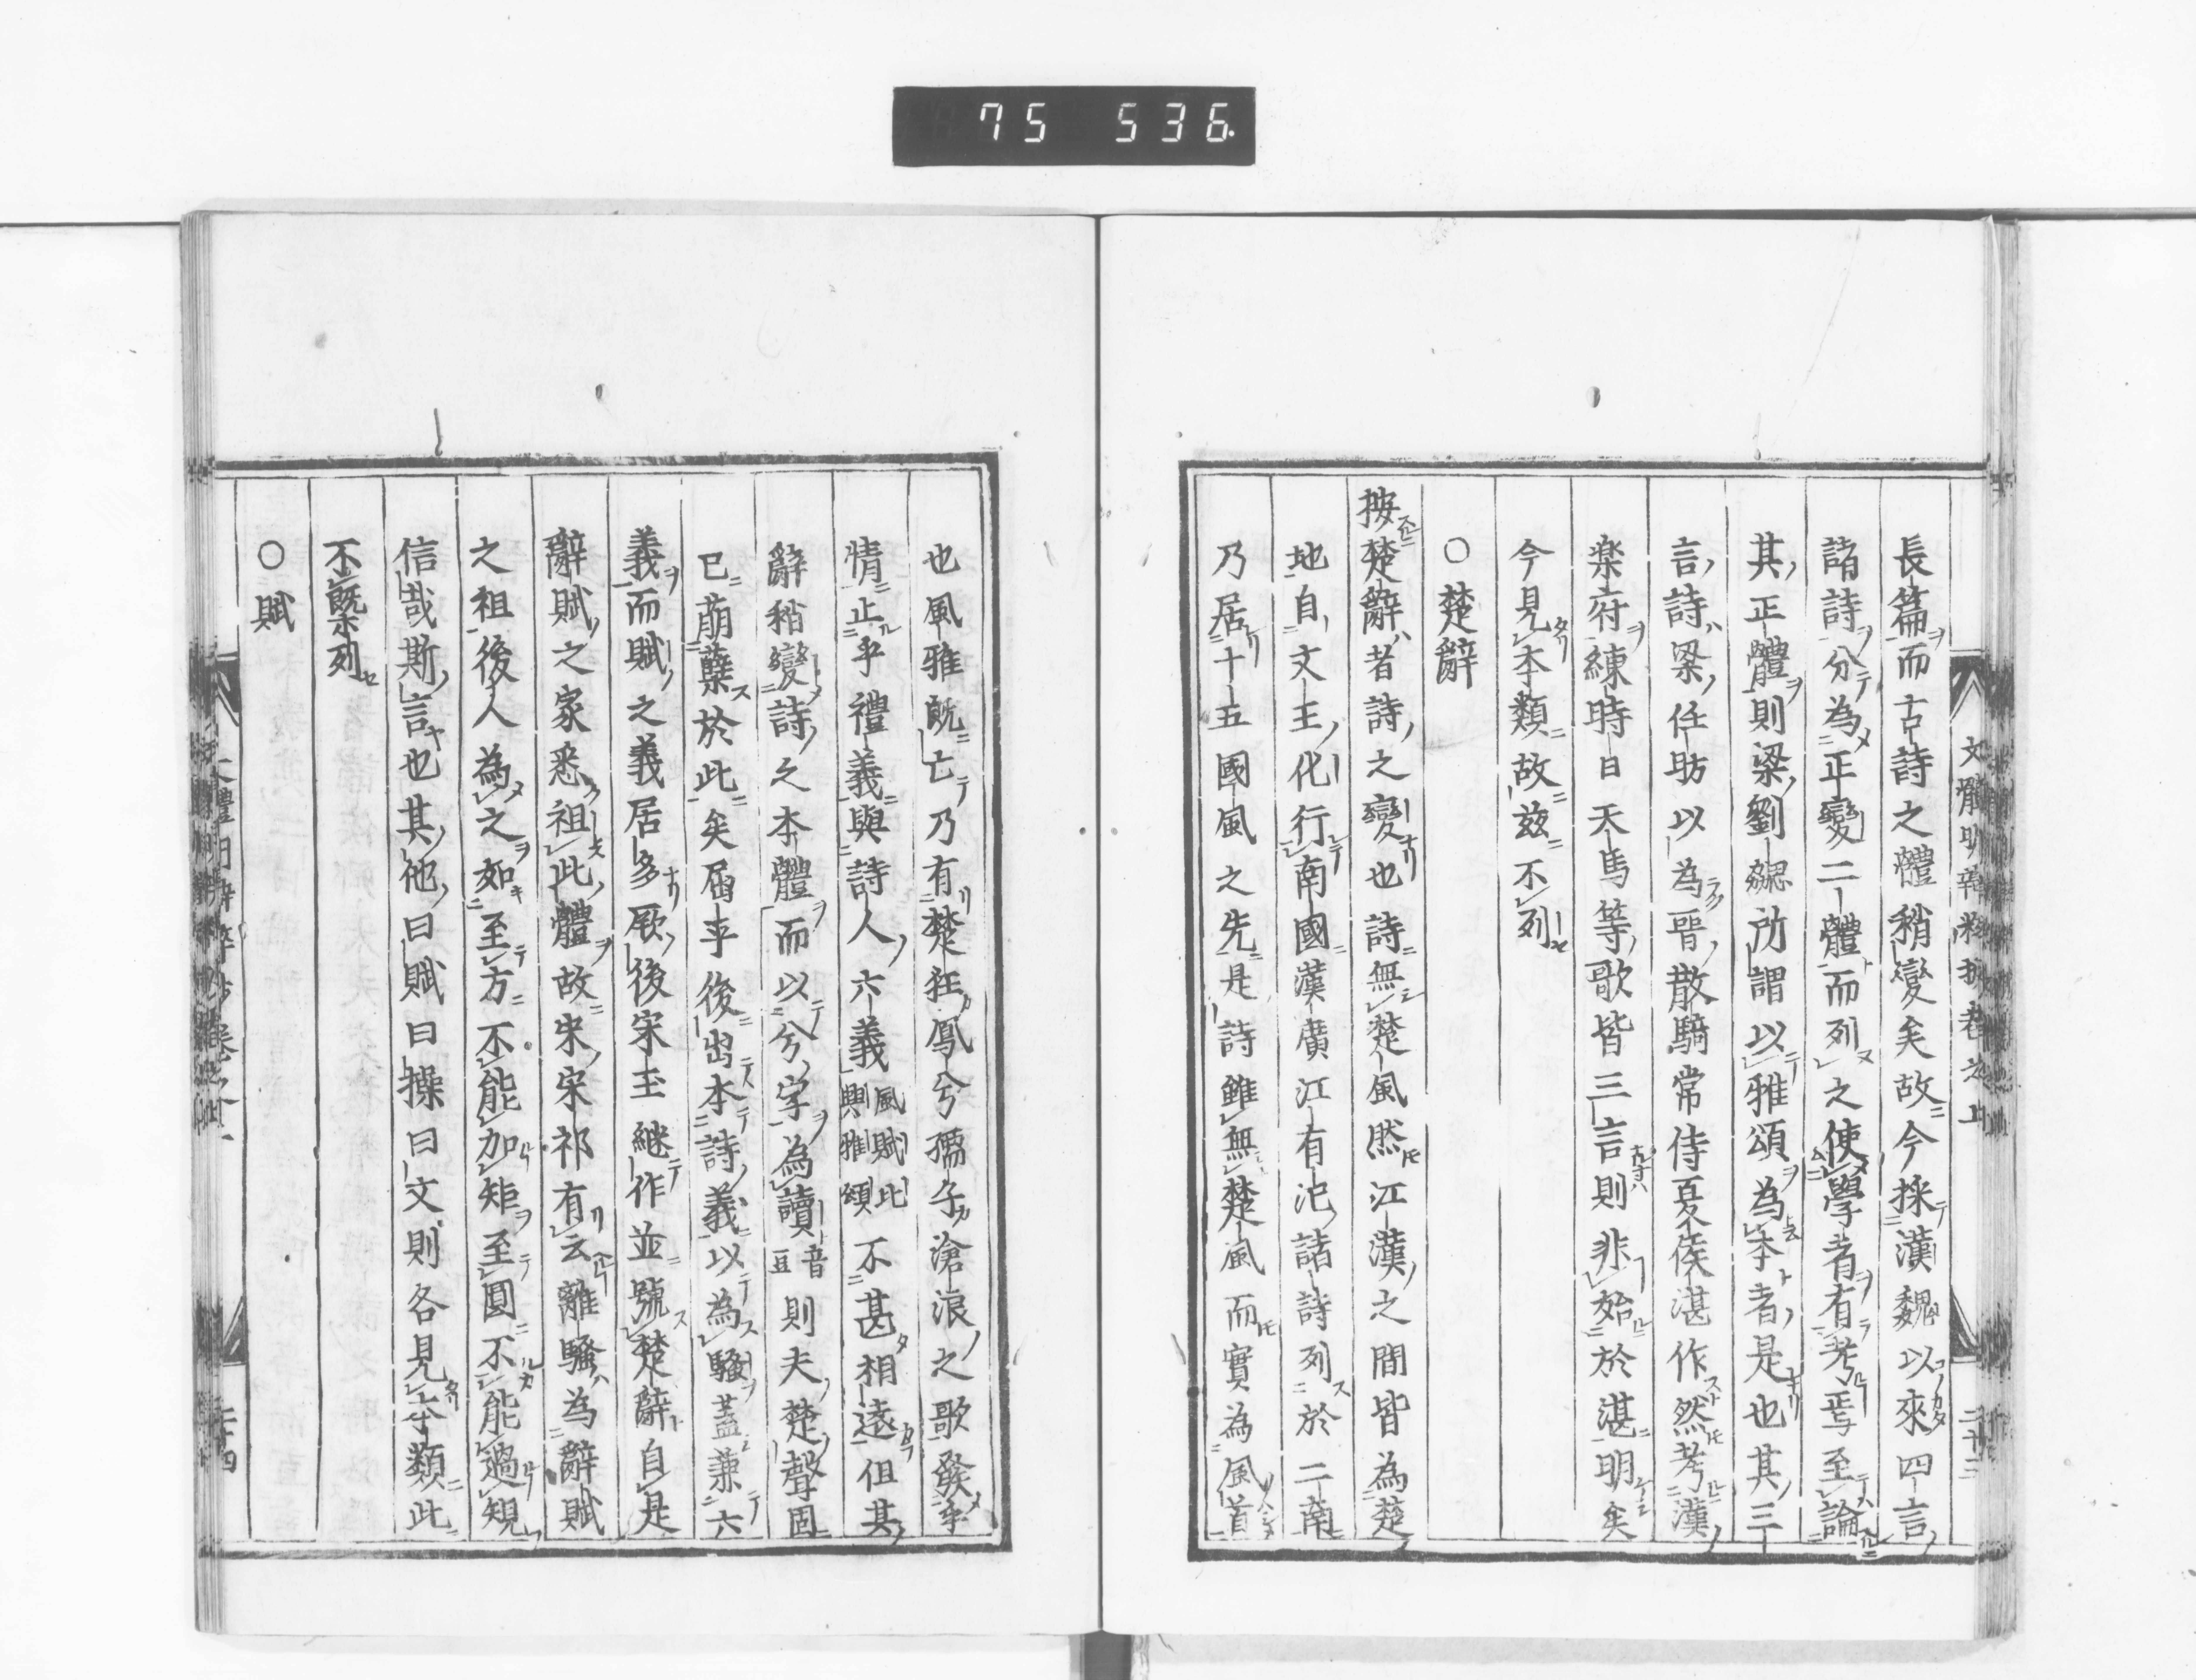 75 536
長篇而古詩之體稍變矣故今採漢魏以來四言
諸詩分為正變二體而列之使學者有考焉至論
其正體則梁劉勰所謂以雅頌為本者是也其三
言詩梁任昉以為晋散騎常侍夏侯湛作然考漢
楽府練時日天馬等歌皆三言則非始於湛明矣
今見本類故茲不列
○楚辭
按楚辭者詩之變也詩無楚風然江漢之間皆為楚
地自文王化行南國漢廣江有汜諸詩列於二南
乃居十五國風之先是詩雖無楚風而實為風首
也風雅既亡乃有楚狂鳳兮孺子滄浪之歌發乎
情止乎禮義與詩人六義風賦比興雅頌不甚相遠但其
辭稍變詩之本體而以兮字為讀音豆則夫楚聲固
已萠蘖於此矣屈平後出本詩義以為騷蓋兼六
義而賦之義居多厥後宋玉継作並號楚辭自是
辭賦之家悉祖此體故宋宋祁有云離騷為辭賦
之祖後人為之如至方不能加矩至圓不能過規
信哉斯言也其他曰賦曰操曰文則各見本類此
不槩列
○賦